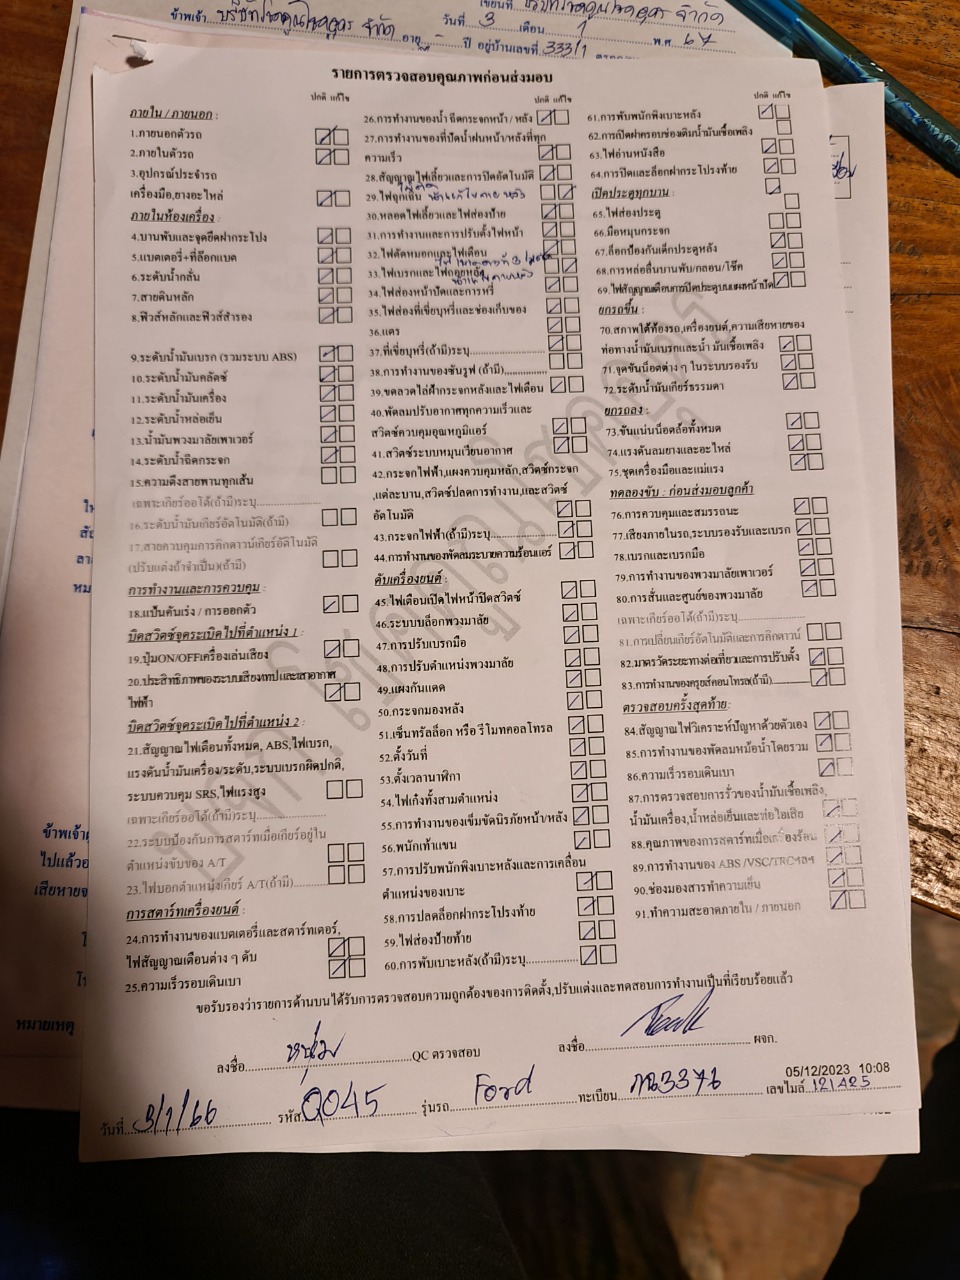 ข้าพเจ้า บริษัท
จำกัด
วันที่ 3 เดือน 1 พ.ศ. 67
อายุ - ปี อยู่บ้านเลขที่ 333/1
รายการตรวจสอบคุณภาพก่อนส่งมอบ
ปกติ แก้ไข
ภายใน / ภายนอก :
1.ภายนอกตัวรถ
2.ภายในตัวรถ
3.อุปกรณ์ประจำรถ
เครื่องมือ,ยางอะไหล่
ภายในห้องเครื่อง :
4.บานพับและจุดยึดฝากระโปง
5.แบตเตอรี่+ที่ล๊อกแบต
6.ระดับน้ำกลั่น
7.สายดินหลัก
8.ฟิวส์หลักและฟิวส์สำรอง
9.ระดับน้ำมันเบรก (รวมระบบ ABS)
10.ระดับน้ำมันคลัตซ์
11.ระดับน้ำมันเครื่อง
12.ระดับน้ำหล่อเย็น
13.น้ำมันพวงมาลัยเพาเวอร์
14.ระดับน้ำฉีดกระจก
15.ความตึงสายพานทุกเส้น
เฉพาะเกียร์ออโต้(ถ้ามี)ระบุ
16.ระดับน้ำมันเกียร์อัตโนมัติ(ถ้ามี)
17.สายควบคุมการคิกดาวน์เกียร์อัติโนมัติ
(ปรับแต่งถ้าจำเป็น)(ถ้ามี)
การทำงานและการควบคุม :
18.แป้นคันเร่ง / การออกตัว
บิดสวิตซ์จุดระเบิดไปที่ตำแหน่ง 1 :
19.ปุ่มON/OFFเครื่องเล่นเสียง
20.ประสิทธิภาพของระบบเสียงเทปและเสาอากาศ
ไฟฟ้า
บิดสวิตซ์จุดระเบิดไปที่ตำแหน่ง 2 :
21.สัญญาณไฟเตือนทั้งหมด, ABS,ไฟเบรก,
แรงดันน้ำมันเครื่อง/ระดับ,ระบบเบรกผิดปกติ,
ระบบควบคุม SRS,ไฟแรงสูง
เฉพาะเกียร์ออโต้(ถ้ามี)ระบุ
22.ระบบป้องกันการสตาร์ทเมื่อเกียร์อยู่ใน
ตำแหน่งขับของ A/T
23.ไฟบอกตำแหน่งเกียร์ A/T(ถ้ามี)
การสตาร์ทเครื่องยนต์ :
24.การทำงานของแบตเตอรี่และสตาร์ทเตอร์,
ไฟสัญญาณเตือนต่าง ๆ ดับ
25.ความเร็วรอบเดินเบา
ปกติ แก้ไข
26.การทำงานของน้ำ ฉีดกระจกหน้า / หลัง
27.การทำงานของที่ปัดน้ำฝนหน้า/หลังที่ทุก
ความเร็ว
28.สัญญาณไฟเลี้ยวและการปิดอัตโนมัติ
29.ไฟฉุกเฉิน
30.หลอดไฟเลี้ยวและไฟส่องป้าย
31.การทำงานและการปรับตั้งไฟหน้า
32.ไฟตัดหมอกและไฟเตือน
33.ไฟเบรกและไฟถอยหลัง
34.ไฟส่องหน้าปัดและการหรี่
35.ไฟส่องที่เขี่ยบุหรี่และช่องเก็บของ
36.แตร
37.ที่เขี่ยบุหรี่(ถ้ามี)ระบุ
38.การทำงานของซันรูฟ (ถ้ามี)
39.ขดลวดไล่ฝ้ากระจกหลังและไฟเตือน
40.พัดลมปรับอากาศทุกความเร็วและ
สวิตซ์ควบคุมอุณหภูมิแอร์
41.สวิตซ์ระบบหมุนเวียนอากาศ
42.กระจกไฟฟ้า,แผงควบคุมหลัก,สวิตซ์กระจก
,แต่ละบาน,สวิตซ์ปลดการทำงาน,และสวิตซ์
อัตโนมัติ
43.กระจกไฟฟ้า(ถ้ามี)ระบุ
44.การทำงานของพัดลมระบายความร้อนแอร์
ดับเครื่องยนต์ :
45.ไฟเตือนเปิดไฟหน้าปิดสวิตซ์
46.ระบบบล็อกพวงมาลัย
47.การปรับเบรกมือ
48.การปรับตำแหน่งพวงมาลัย
49.แผงกันแดด
50.กระจกมองหลัง
51.เซ็นทรัลล็อก หรือ รีโมทคอลโทรล
52.ตั้งวันที่
53.ตั้งเวลานาฬิกา
54.ไฟเก๋งทั้งสามตำแหน่ง
55.การทำงานของเข็มขัดนิรภัยหน้า/หลัง
56.พนักเท้าแขน
57.การปรับพนักพิงเบาะหลังและการเคลื่อน
ตำแหน่งของเบาะ
58.การปลดล็อกฝากระโปรงท้าย
59.ไฟส่องป้ายท้าย
60.การพับเบาะหลัง(ถ้ามี)ระบุ
ปกติ แก้ไข
61.การพับพนักพิงเบาะหลัง
62.การเปิดฝาครอบช่องเติมน้ำมันเชื้อเพลิง
63.ไฟอ่านหนังสือ
64.การปิดและล็อกฝากระโปรงท้าย
เปิดประตูทุกบาน :
65.ไฟส่องประตู
66.มือหมุนกระจก
67.ล็อกป้องกันเด็กประตูหลัง
68.การหล่อลื่นบานพับ/กลอน/โช๊ค
69.ไฟสัญญาณเตือนการปิดประตูบนแผงหน้าปัด
ยกรถขึ้น :
70.สภาพใต้ท้องรถ,เครื่องยนต์,ความเสียหายของ
ท่อทางน้ำมันเบรกและน้ำ มันเชื้อเพลิง
71.จุดขันน็อตต่าง ๆ ในระบบรองรับ
72.ระดับน้ำมันเกียร์ธรรมดา
ยกรถลง :
73.ขันแน่นน็อตล้อทั้งหมด
74.แรงดันลมยางและอะไหล่
75.ชุดเครื่องมือและแม่แรง
ทดลองขับ : ก่อนส่งมอบลูกค้า
76.การควบคุมและสมรรถนะ
77.เสียงภายในรถ,ระบบรองรับและเบรก
78.เบรกและเบรกมือ
79.การทำงานของพวงมาลัยเพาเวอร์
80.การสั่นและศูนย์ของพวงมาลัย
เฉพาะเกียร์ออโต้(ถ้ามี)ระบุ
81.การเปลี่ยนเกียร์อัตโนมัติและการคิกดาวน์
82.มาตรวัดระยะทางต่อเที่ยวและการปรับตั้ง
83.การทำงานของครูยส์คอนโทรล(ถ้ามี)
ตรวจสอบครั้งสุดท้าย :
84.สัญญาณไฟวิเคราะห์ปัญหาด้วยตัวเอง
85.การทำงานของพัดลมหม้อน้ำโดยรวม
86.ความเร็วรอบเดินเบา
87.การตรวจสอบการรั่วของน้ำมันเชื้อเพลิง,
น้ำมันเครื่อง,น้ำหล่อเย็นและท่อไอเสีย
88.คุณภาพของการสตาร์ทเมื่อเครื่องร้อน
89.การทำงานของ ABS /VSC/TRCฯลฯ
90.ช่องมองสารทำความเย็น
91.ทำความสะอาดภายใน / ภายนอก
ขอรับรองว่ารายการด้านบนได้รับการตรวจสอบความถูกต้องของการติดตั้ง,ปรับแต่งและทดสอบการทำงานเป็นที่เรียบร้อยแล้ว
ลงชื่อ หนุ่ม QC ตรวจสอบ
ลงชื่อ ผจก.
05/12/2023 10:08
วันที่ 3/1/66 รหัส Q045 รุ่นรถ Ford ทะเบียน 3376 เลขไมล์ 121425
ข้าพเจ้า
ไปแล้ว
เสียหาย
หมายเหตุ